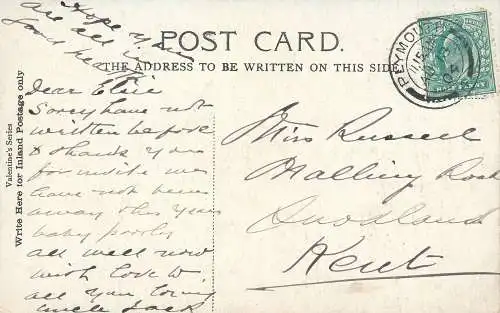 Hope you
are all in
good health
POST CARD.
THE ADDRESS TO BE WRITTEN ON THIS SIDE
Valentine's Series
Write Here for Inland Postage only
Dear Elsie
Sorry have not
written before
& thank you
for invite we
have not been
away this year
baby poorly
all well now
with love to
all your loving
uncle Jack
Miss Russell
Malling Road
Snodland
Kent